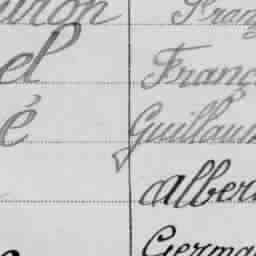 uron Franç
el Franç
é Guillaum
Alber
Germa